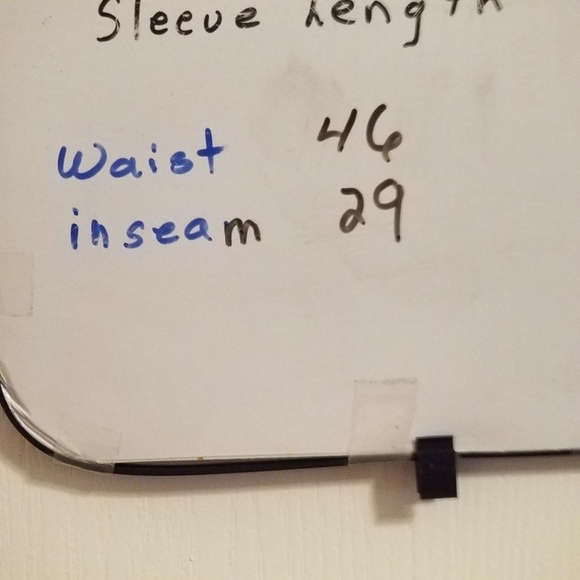 Sleeve Length
Waist 46
inseam 29